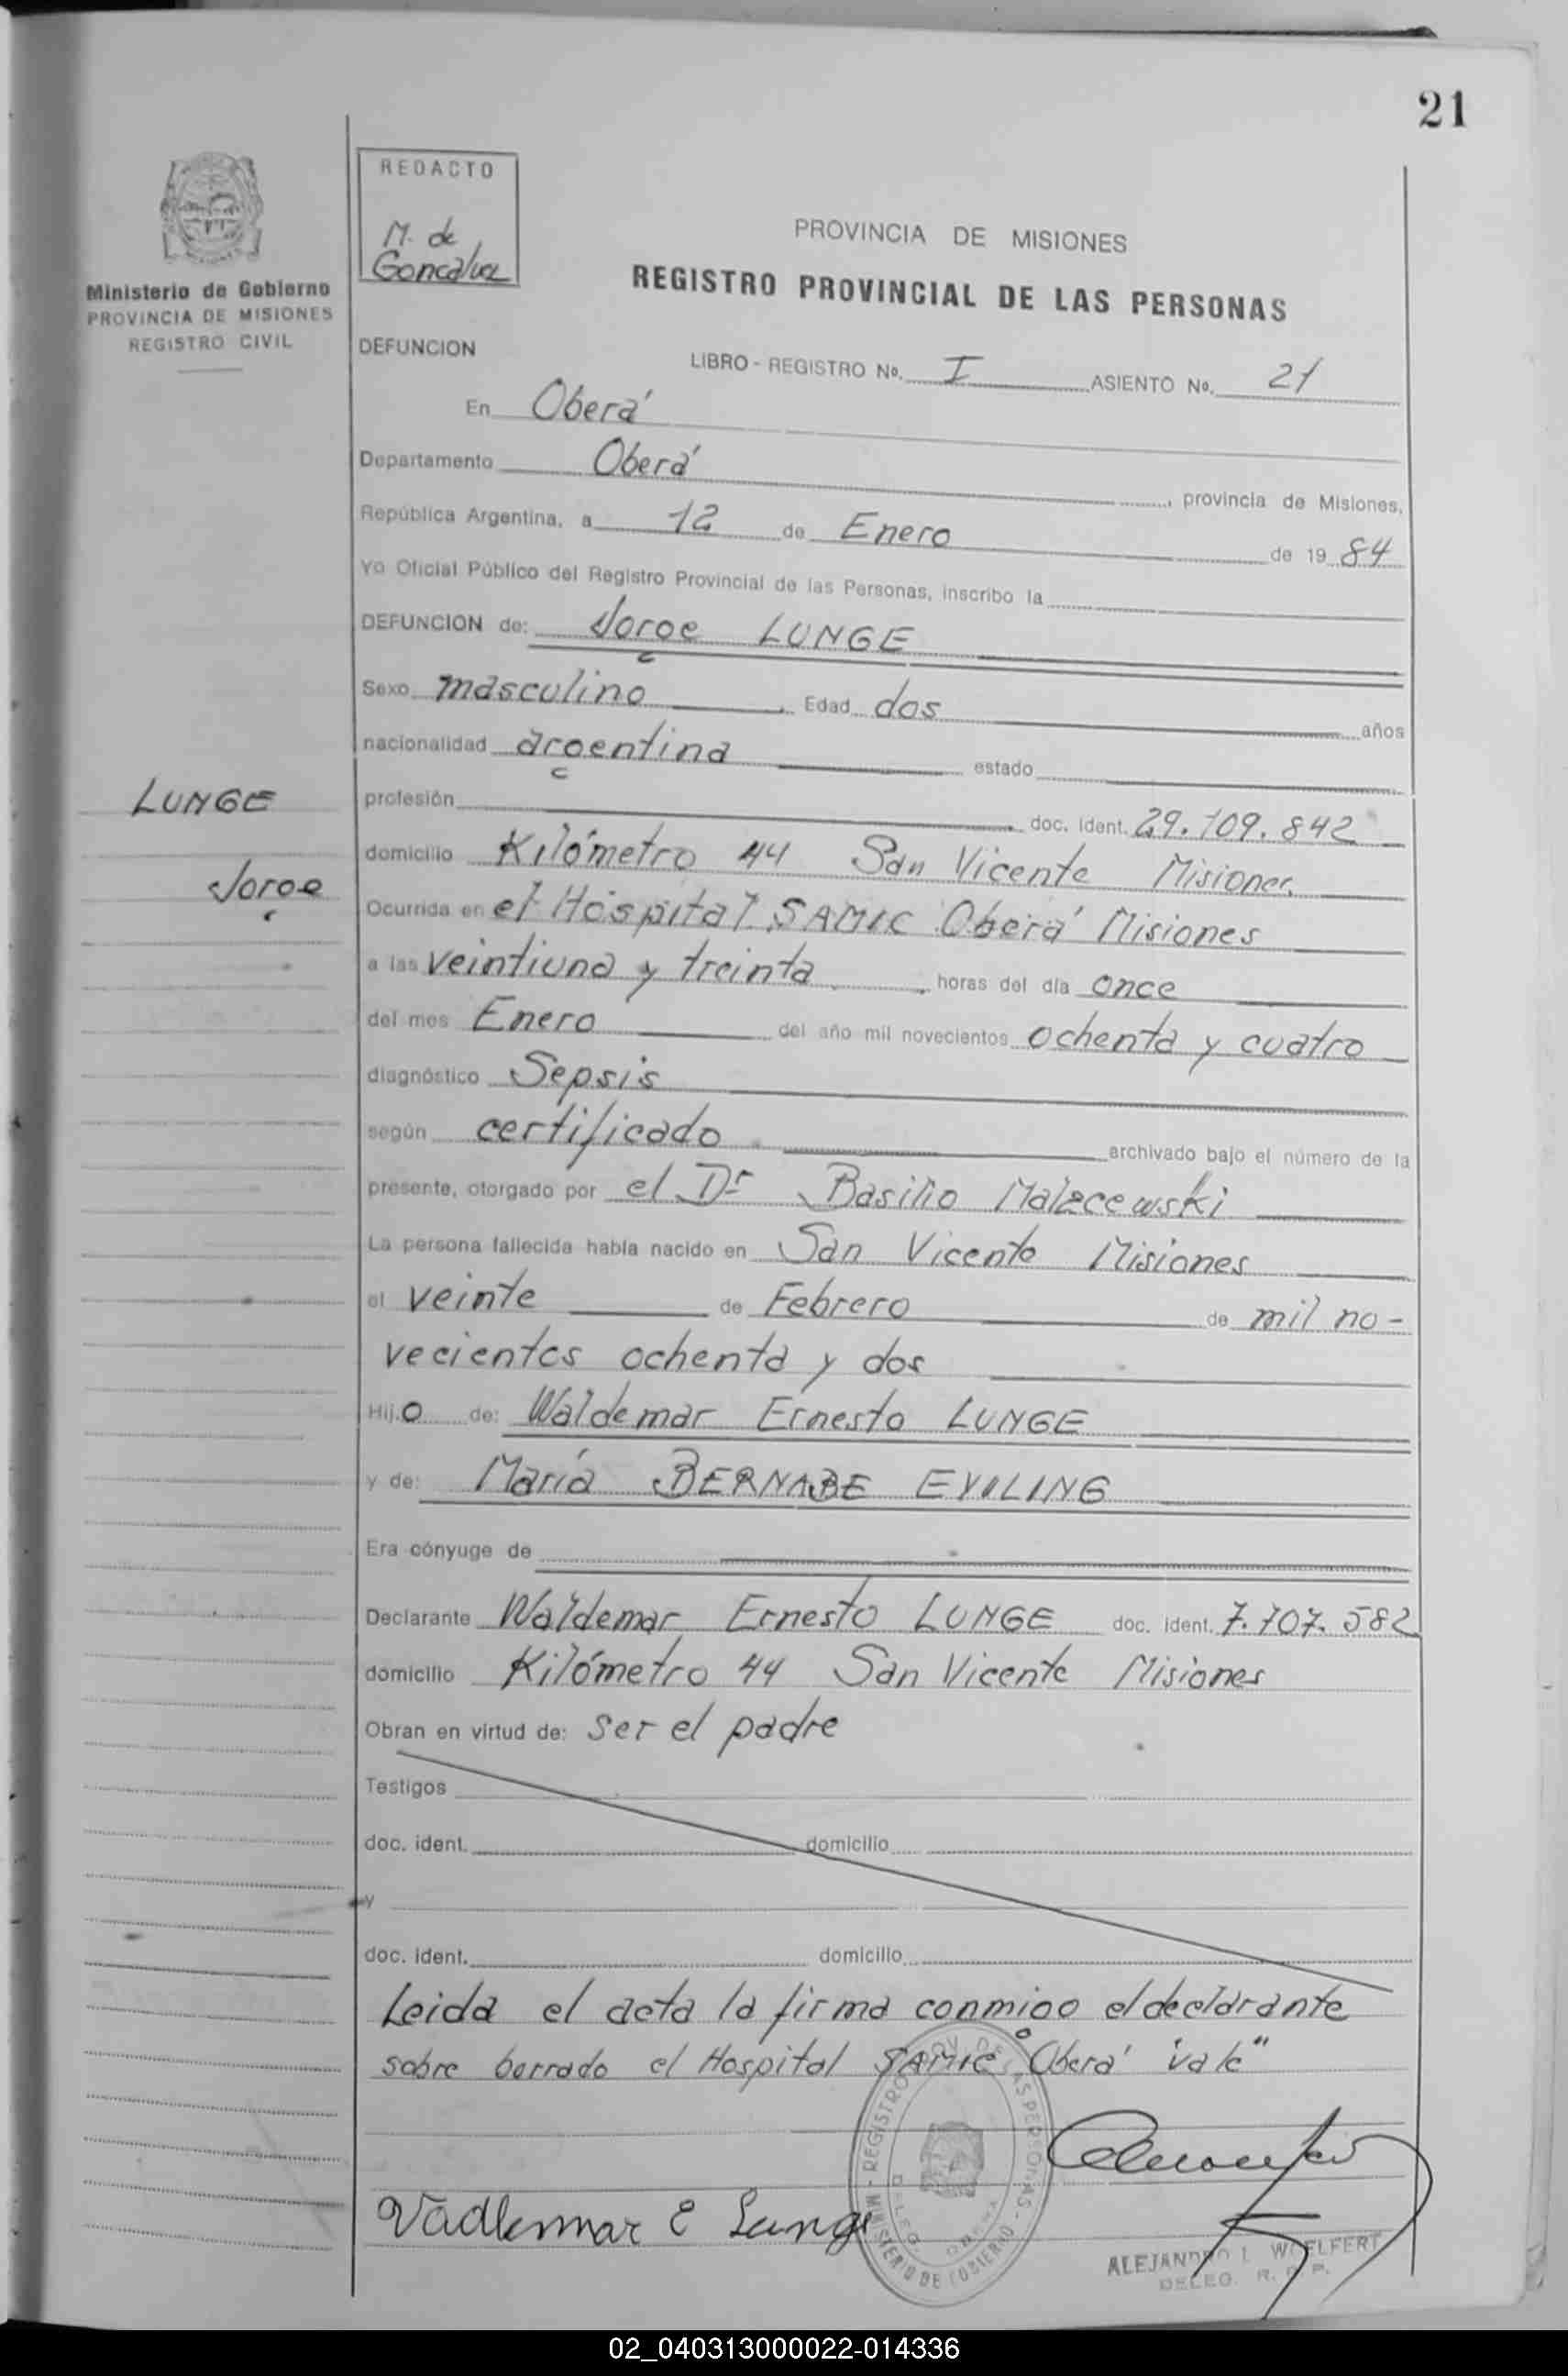 21
REDACTO
M. de
Goncalvez
Ministerio de Gobierno
PROVINCIA DE MISIONES
REGISTRO CIVIL
PROVINCIA DE MISIONES
REGISTRO PROVINCIAL DE LAS PERSONAS
DEFUNCION LIBRO - REGISTRO No. I ASIENTO No. 21
En Oberá
Departamento Oberá, provincia de Misiones,
República Argentina, a 12 de Enero de 1984
Yo Oficial Público del Registro Provincial de las Personas, inscribo la
DEFUNCION de: Jorge LUNGE
Sexo masculino Edad dos años
nacionalidad argentina estado
LUNGE
Jorge
profesión doc. ident. 29.109.842
domicilio Kilómetro 44 San Vicente Misiones
Ocurrida en el Hospital SAMIC Oberá Misiones
a las veintiuna y treinta horas del día once
del mes Enero del año mil novecientos ochenta y cuatro
diagnóstico Sepsis
según certificado archivado bajo el número de la
presente, otorgado por el Dr Basilio Malacewski
La persona fallecida había nacido en San Vicente Misiones
el veinte de Febrero de mil no-
vecientos ochenta y dos
Hij.o de: Waldemar Ernesto LUNGE
y de: María BERNABE
Era cónyuge de
Declarante Waldemar Ernesto LUNGE doc. ident. 7.707.582
domicilio Kilómetro 44 San Vicente Misiones
Obran en virtud de: ser el padre
Testigos
doc. ident. domicilio
y
doc. ident. domicilio
Leida el acta la firma conmigo el declarante
sobre borrado el Hospital SAMIC Oberá vale"
Vadlemar E Lunge
MINISTERIO DE GOBIERNO - REGISTRO PROV. DE LAS PERSONAS -
DELEG. OBERA
ALEJANDRO L. WOELFERT
DELEG. R. P. P.
02_040313000022-014336